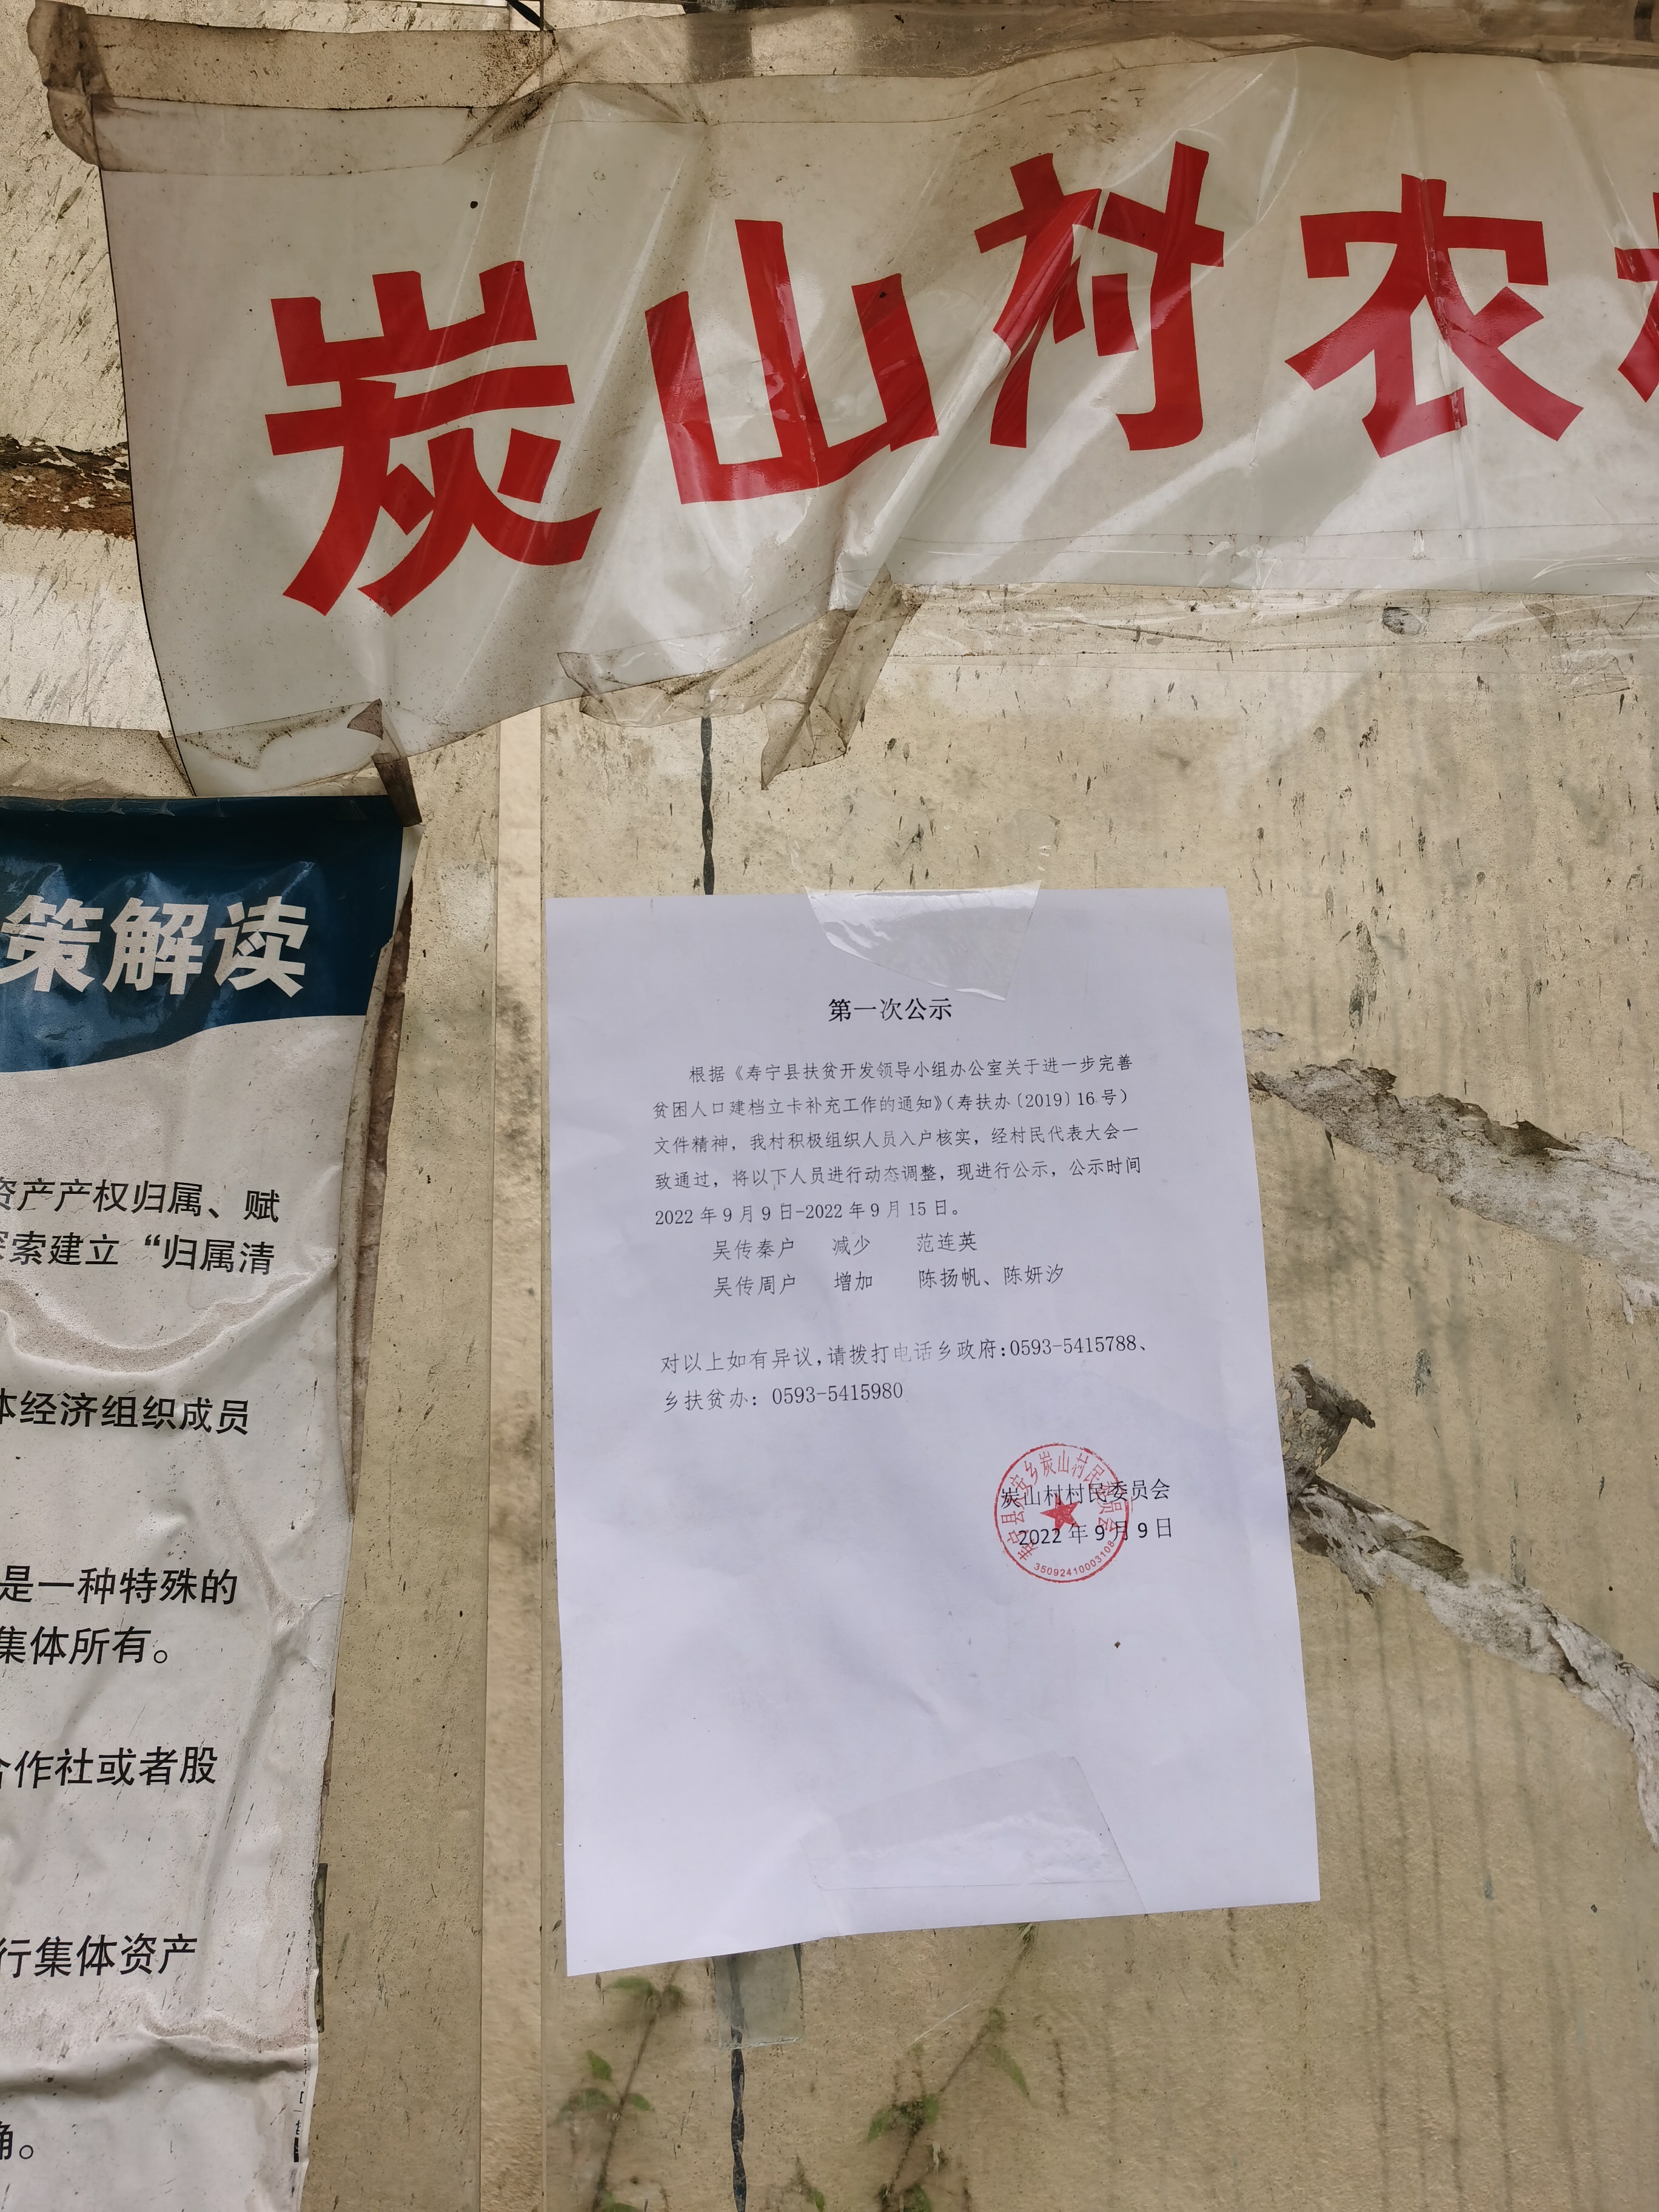 炭山村农
策解读
资产产权归属、赋
探索建立“归属清
体经济组织成员
是一种特殊的
集体所有。
合作社或者股
行集体资产
确。
第一次公示
根据《寿宁县扶贫开发领导小组办公室关于进一步完善
贫困人口建档立卡补充工作的通知》（寿扶办〔2019〕16号）
文件精神，我村积极组织人员入户核实，经村民代表大会一
致通过，将以下人员进行动态调整，现进行公示，公示时间
2022年9月9日-2022年9月15日。
吴传秦户 减少 范连英
吴传周户 增加 陈扬帆、陈妍汐
对以上如有异议,请拨打电话乡政府:0593-5415788、
乡扶贫办：0593-5415980
炭山村村民委员会
2022年9月9日
35092410003108